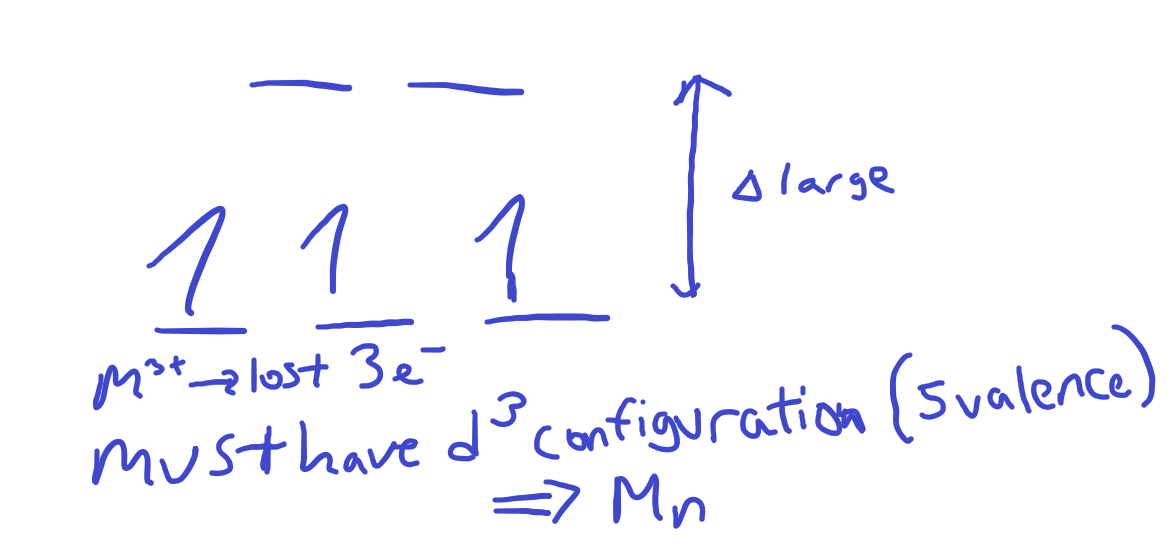 Δ large
1 1 1
M³⁺ → lost 3e⁻
Must have d³ configuration (5 valence)
⇒ Mn